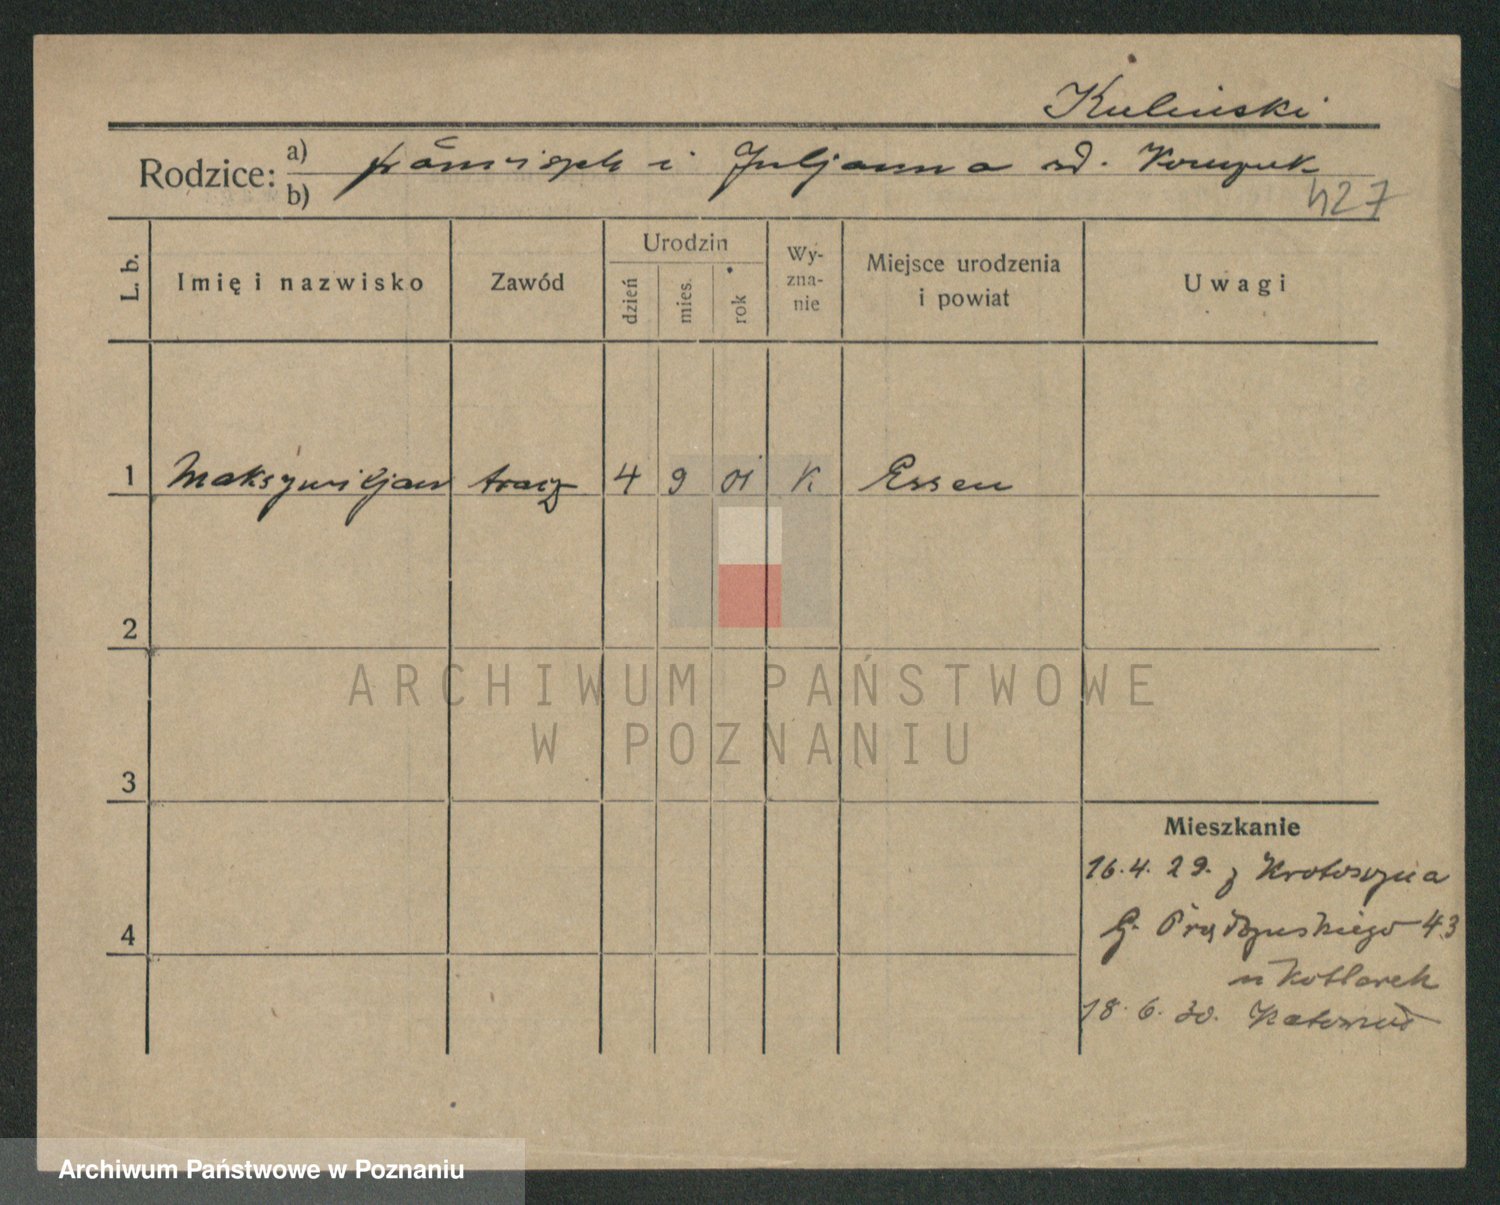 Kuliński
Rodzice: a) Franciszek i Juljanna zd.
b)
427
L. b.
Imię i nazwisko
Zawód
Urodzin
dzień
mies.
rok
Wy-
zna-
nie
Miejsce urodzenia
i powiat
Uwagi
1 Maksymiljan tracz 4 9 01 K. Essen
2
3
4
Mieszkanie
16.4.29. z Krotoszyna
G. Prądzyńskiego 43
u Kotlarek
18.6.30.
ARCHIWUM PAŃSTWOWE
W POZNANIU
Archiwum Państwowe w Poznaniu